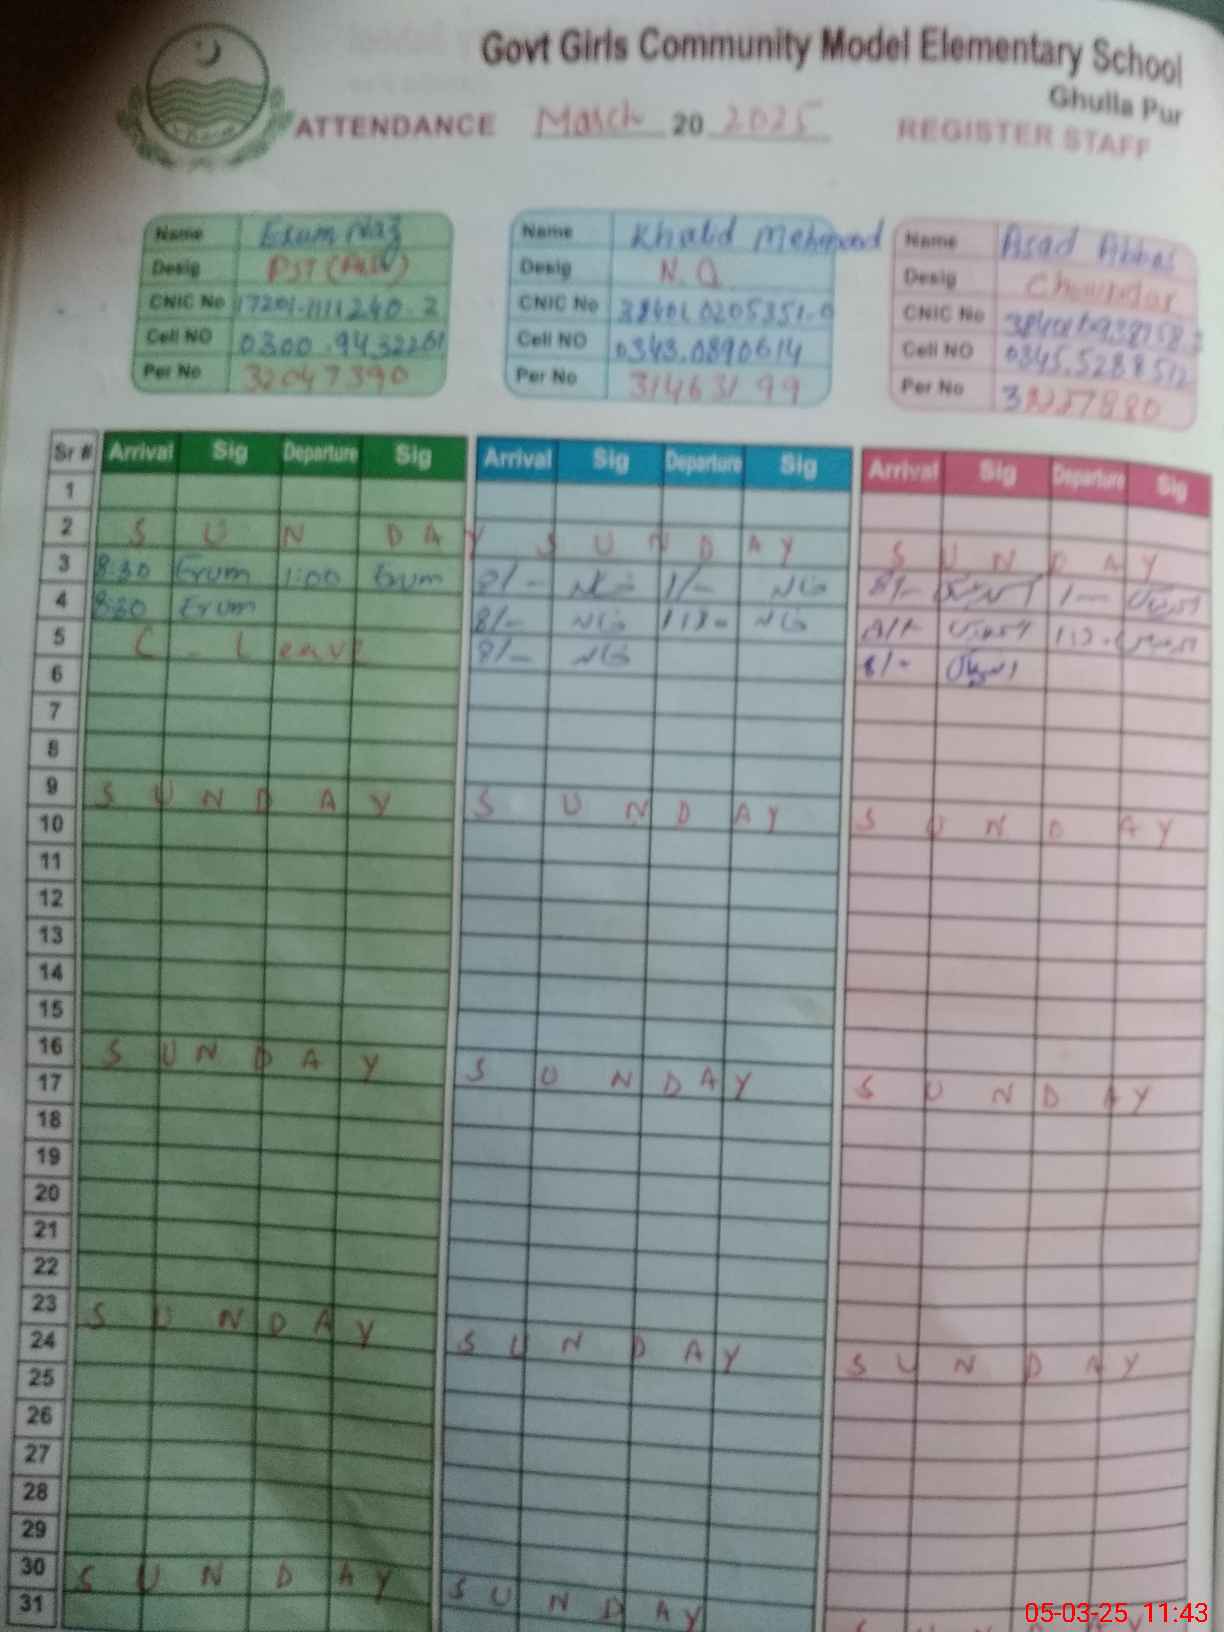 Govt Girls Community Model Elementary School
Ghulla Pur
ATTENDANCE March 20 2025 REGISTER STAFF
Name Erum Naz
Desig PST
CNIC No 17201-1111240-2
Cell NO 0300.9432261
Per No 32047390
Name Khalid Mehmood
Desig N.Q.
CNIC No 38401 0205351-0
Cell NO 0343.0890614
Per No 31463199
Name Asad Abbas
Desig Chowkidar
CNIC No
Cell NO 0345.5288512
Per No
Sr # Arrival Sig Departure Sig Arrival Sig Departure Sig Arrival Sig Departure Sig
1
2 SUNDAY SUNDAY SUNDAY
3 8:30 Erum 1:00 Erum 8/- 1/- 8/- 1/-
4 8:30 Erum 8/- 1130
5 C. Leave 8/-
6 8/-
7
8
9 SUNDAY SUNDAY SUNDAY
10
11
12
13
14
15
16 SUNDAY SUNDAY SUNDAY
17
18
19
20
21
22
23 SUNDAY SUNDAY SUNDAY
24
25
26
27
28
29
30 SUNDAY SUNDAY
31
05-03-25 11:43